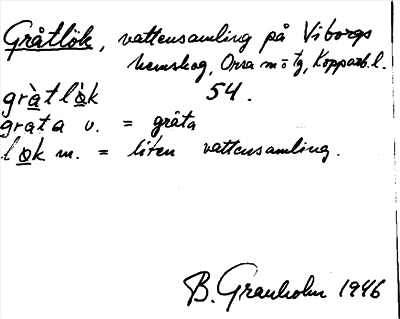 Gråtlök, vattensamling på Viborgs
hemskog, Orsa m = tg, Kopparb. l.
gràtlòk 54.
grata v. = gråta
lok m. = liten vattensamling.
B. Granholm 1946